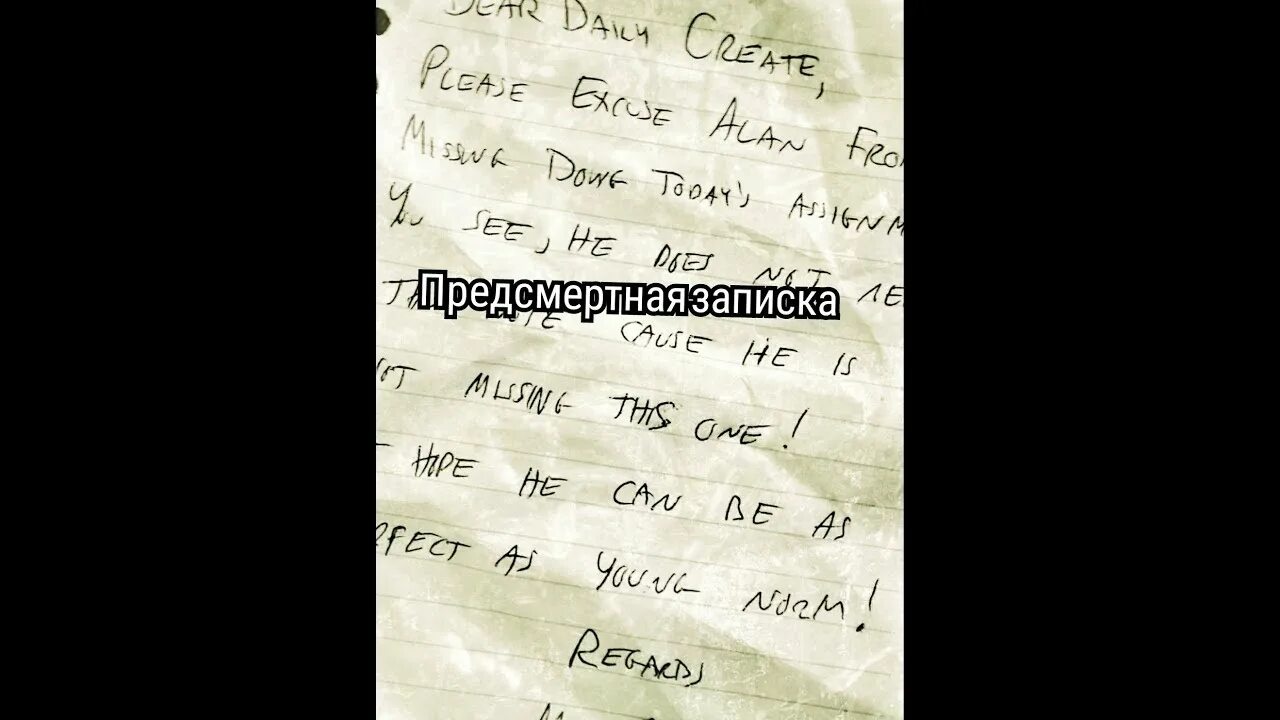 DEAR DAILY CREATE,
PLEASE EXCUSE ALAN FRO
MISSING DOING TODAY'S ASSIGNM
YOU SEE, HE DOES NOT NE
Предсмертная записка
CAUSE HE IS
OT MISSING THIS ONE!
I HOPE HE CAN BE AS
RFECT AS YOUNG NORM!
REGARDS